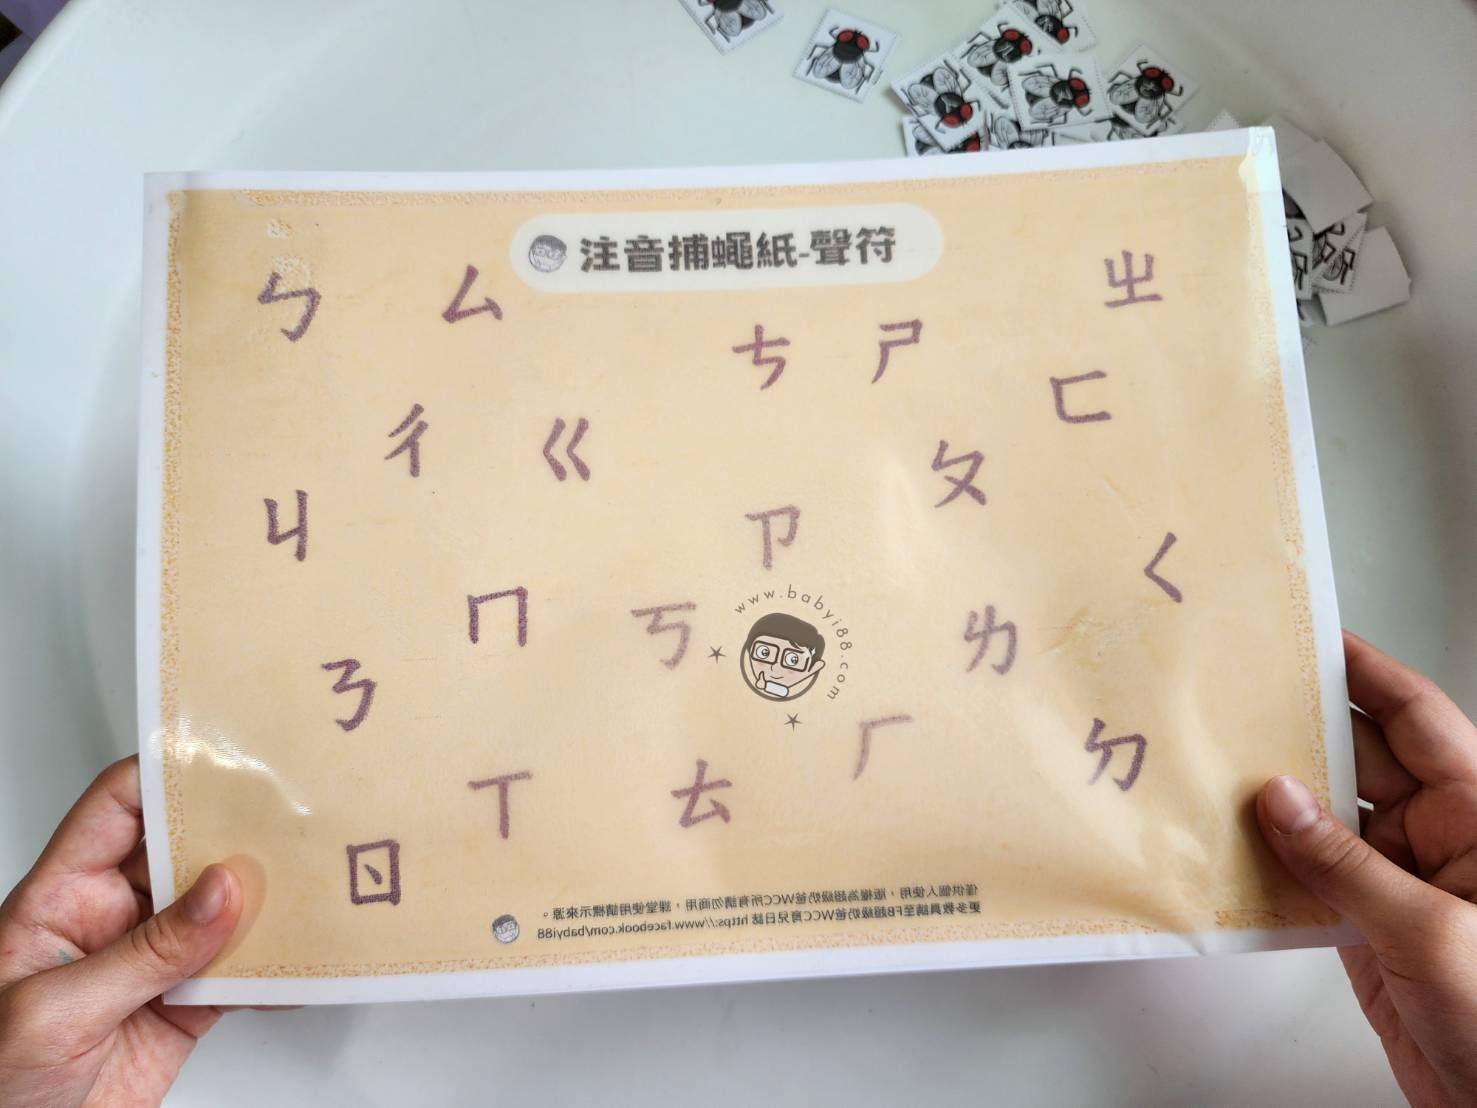 注音捕蠅紙-聲符
ㄅ ㄙ ㄓ
ㄘ ㄕ
ㄈ
ㄔ ㄍ ㄆ
ㄐ ㄗ ㄑ
ㄇ ㄎ ㄌ
www.babyi88.com
ㄋ ㄏ ㄉ
ㄒ ㄊ
ㄖ
僅供個人使用，版權為超級奶爸WCC所有請勿商用，課堂使用請標示來源。
更多教具請至FB超級奶爸WCC育兒日誌 https://www.facebook.com/babyi88